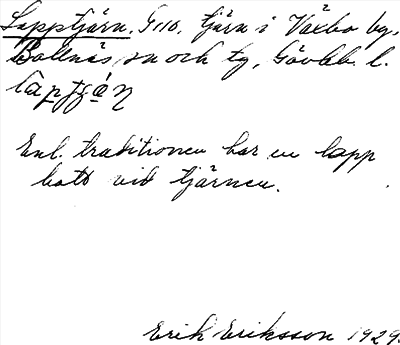 Lapptjärn. G110, tjärn i Växbo by,
Bollnäs sn och tg, Gävleb. l.
Enl. traditionen har en lapp
bott vid tjärnen.
Erik Eriksson 1929.